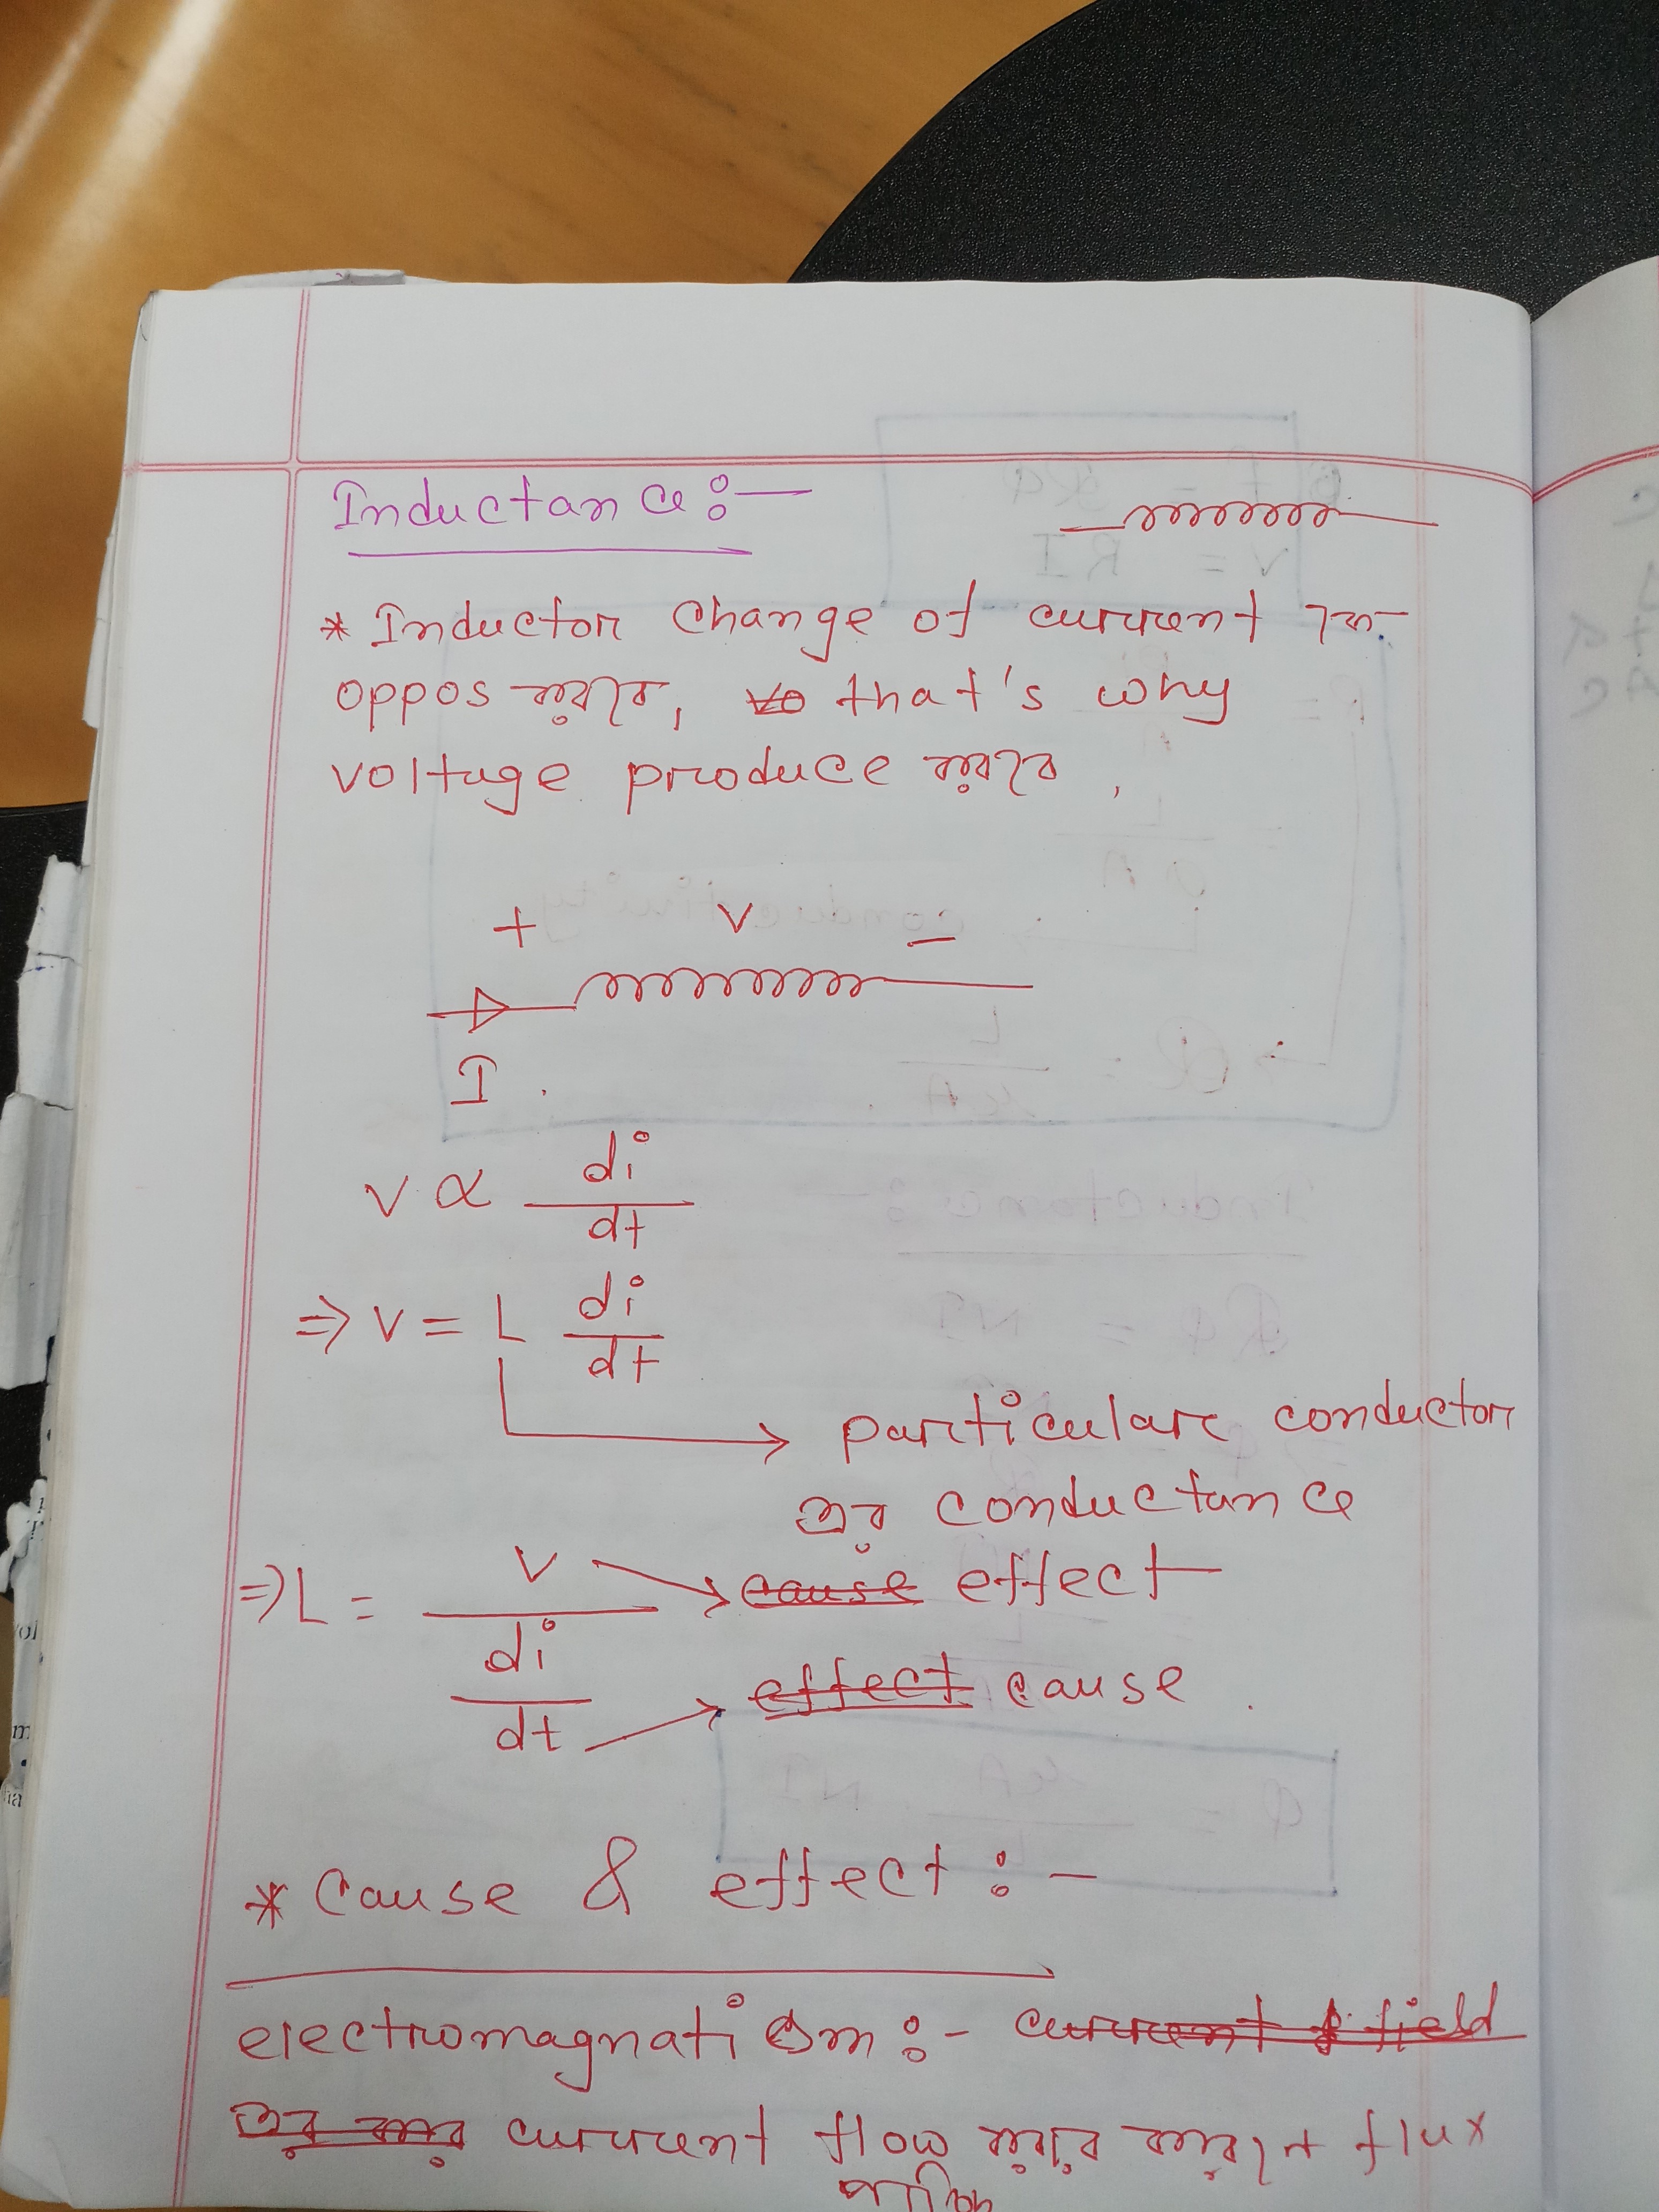 Inductance :—
* Inductor change of current কে
oppos করবে, that's why
voltage produce করবে,
+ V −
I .
V ∝ di/dt
⇒ V = L di/dt
→ particular conductor
এর conductance
⇒ L = V / (di/dt)
→ cause effect
→ effect cause .
* Cause & effect :-
electromagnatism :- current & field
এর current flow করার কারণে flux